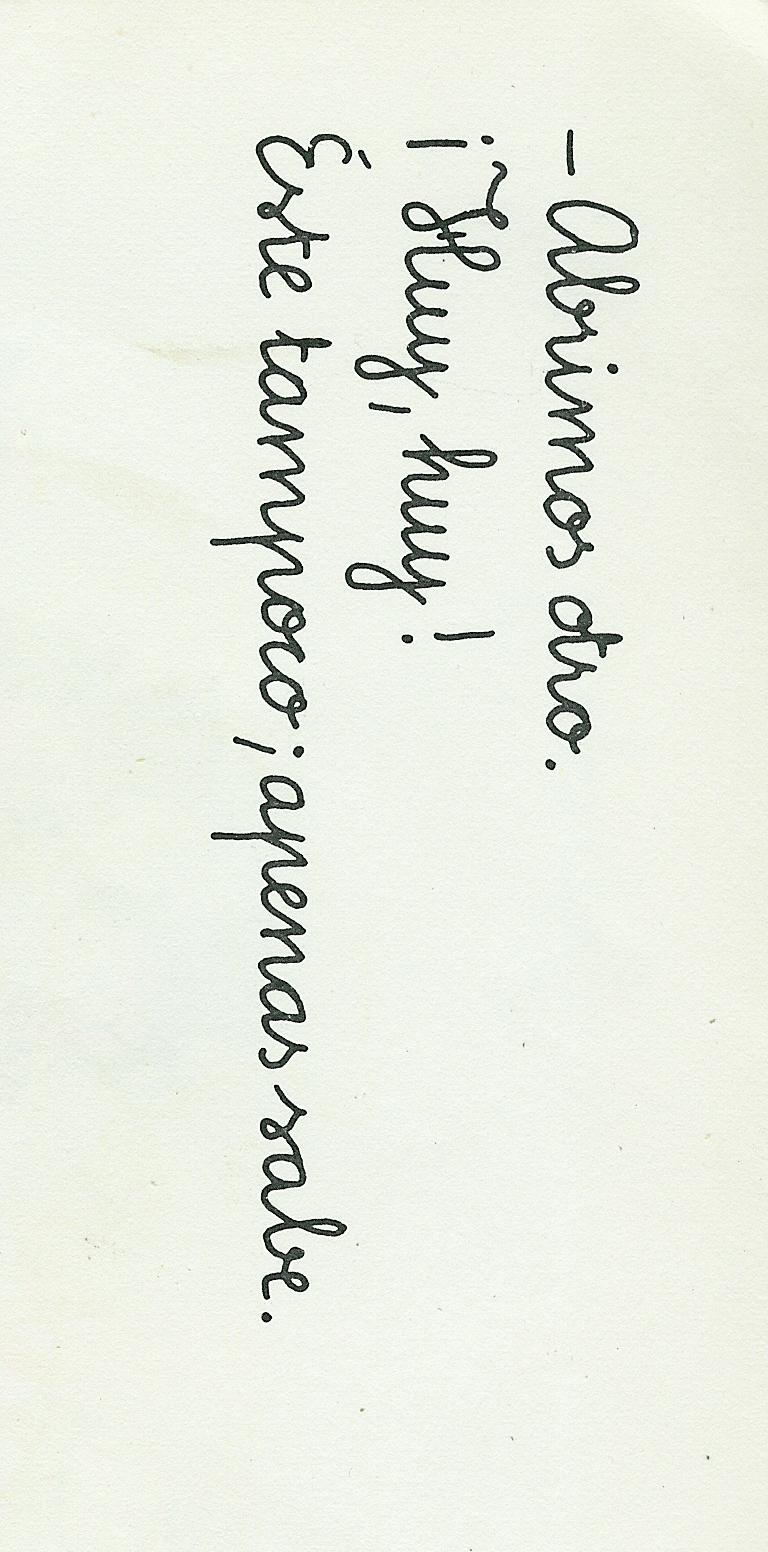 - Abrimos otro.
¡Huy, huy!
Éste tampoco; apenas sabe.